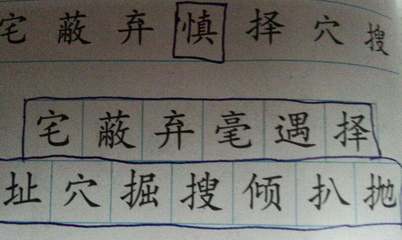 宅蔽弃慎择穴搜
宅蔽弃毫遇择
址穴掘搜倾扒抛